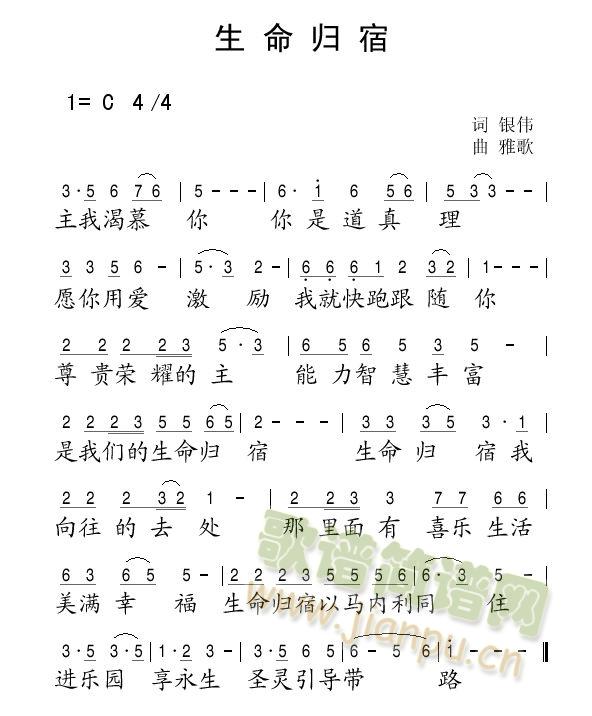 生命归宿
1= C 4/4
词 银伟
曲 雅歌
3·5 6 76 | 5 - - - | 6· i 6 56 | 5 33 - - |
主我渴慕 你 你是道真 理
3 3 5 6 - | 5·3 2 - | 6 6 6 1 2 32 | 1 - - - |
愿你用爱 激 励 我就快跑跟随你
2 2 2 2 23 5·3 | 2 2 5 6 5 3 5 - |
尊贵荣耀的主 能力智慧丰富
2 2 2 23 55 65 | 2 - - - | 33 35 3·1 |
是我们的生命归 宿 生命归 宿我
2 2 2 32 1 - | 2 23 3 77 66 |
向往的去处 那里面有喜乐生活
63 65 5 - | 2 2 2 3 5 5 6 6 | 6·3 5 - |
美满幸 福 生命归宿以马内利同 住
3·5 3·5 | 1·2 3 - | 3·5 3·5 5 | 6 - - 5 | 6 - - ‖
进乐园 享永生 圣灵引导带 路
歌谱简谱网
www.jianpu.cn